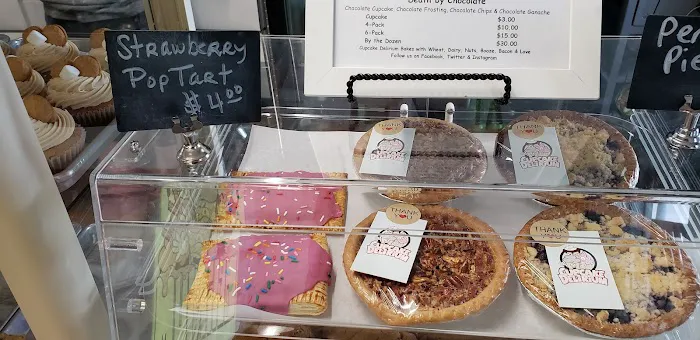 Death by Chocolate
Chocolate Cupcake, Chocolate Frosting, Chocolate Chips & Chocolate Ganache
Cupcake $3.00
4-Pack $10.00
6-Pack $15.00
By the Dozen $30.00
Cupcake Delirium Bakes with Wheat, Dairy, Nuts, Booze, Bacon & Love
Follow us on Facebook, Twitter & Instagram
Strawberry
PopTart
$4.00
Pe
Pie
THANK
YOU
THANK
CUPCAKE
DELIRIUM